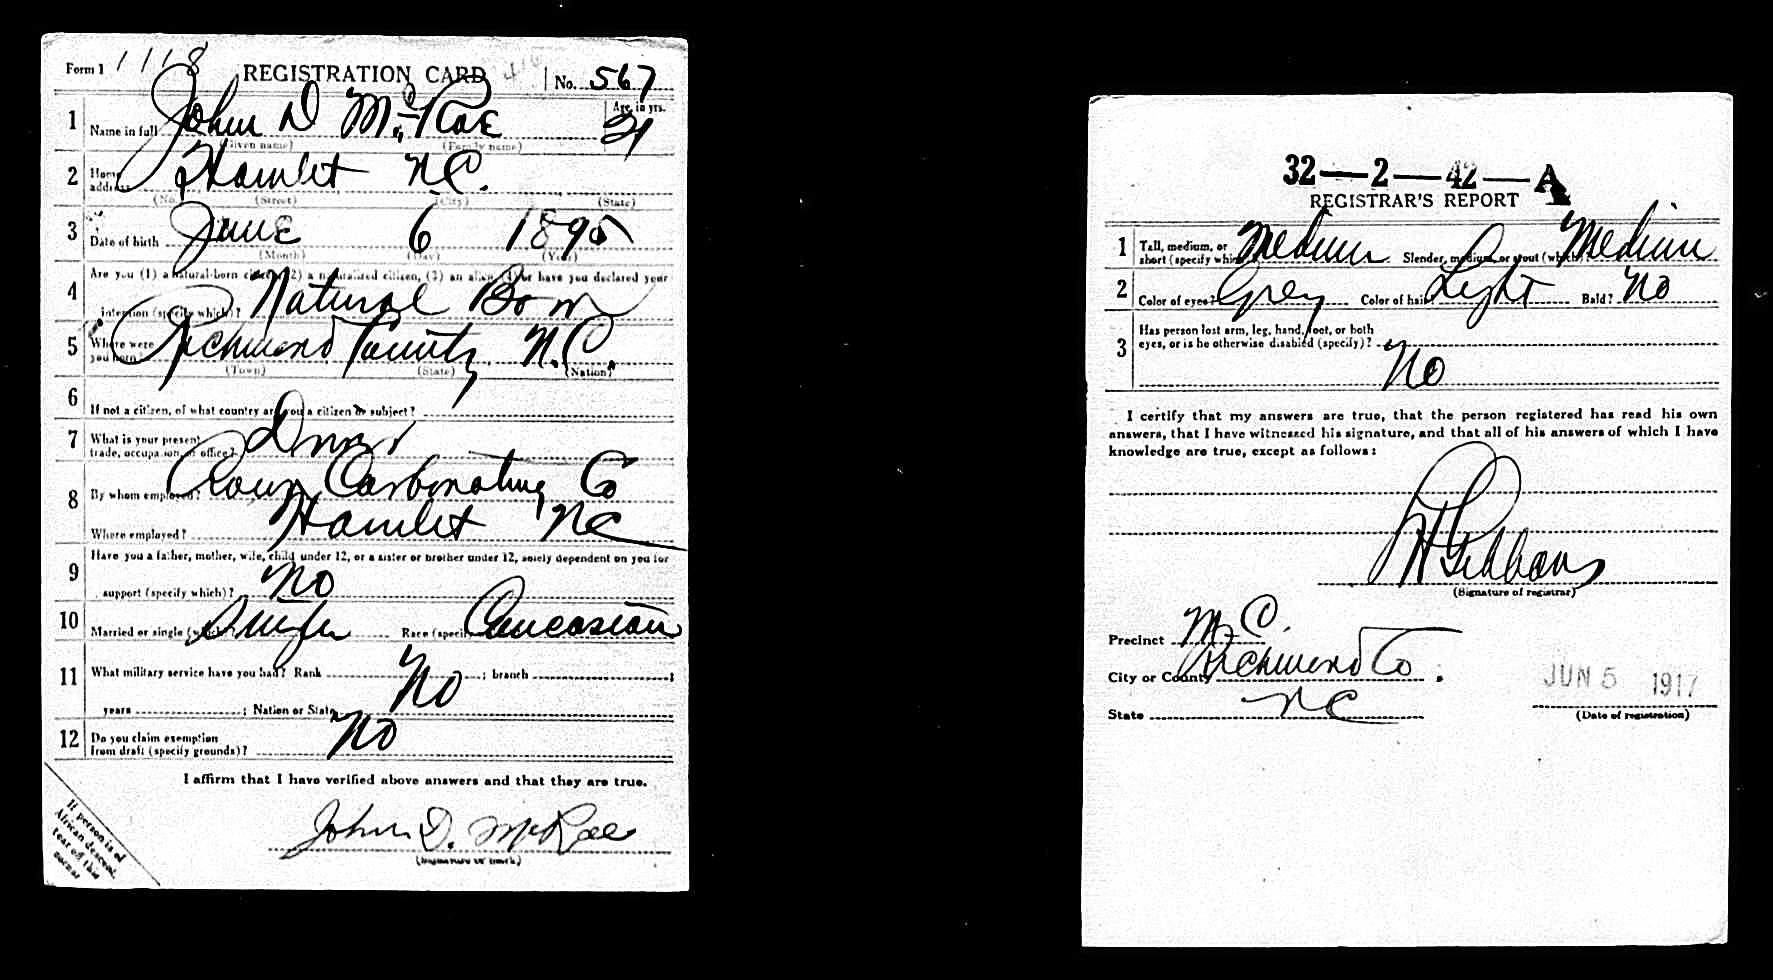 Form 1 1118 REGISTRATION CARD No. 567
1 Name in full John D McRae Age, in yrs. 21
(Given name) (Family name)
2 Home address Hamlet N.C.
(No.) (Street) (City) (State)
3 Date of birth June 6 1895
(Month) (Day) (Year)
4 Are you (1) a natural-born citizen, (2) a naturalized citizen, (3) an alien, (4) or have you declared your
intention (specify which)? Natural Born
5 Where were you born? Richmond County N.C.
(Town) (State) (Nation)
6 If not a citizen, of what country are you a citizen or subject?
7 What is your present trade, occupation, or office?
8 By whom employed? Carbonating Co
Where employed? Hamlet NC
9 Have you a father, mother, wife, child under 12, or a sister or brother under 12, solely dependent on you for
support (specify which)? No
10 Married or single (which)? Single Race (specify which)? Caucasian
11 What military service have you had? Rank No ; branch ;
years ; Nation or State
12 Do you claim exemption from draft (specify grounds)? No
I affirm that I have verified above answers and that they are true.
John D. McRae
(Signature or mark)
If person is of
African descent,
tear off this
corner
32—2—42—A
REGISTRAR'S REPORT
1 Tall, medium, or short (specify which)? Medium Slender, medium, or stout (which)? Medium
2 Color of eyes? Grey Color of hair? Light Bald? No
3 Has person lost arm, leg, hand, foot, or both
eyes, or is he otherwise disabled (specify)?
No
I certify that my answers are true, that the person registered has read his own
answers, that I have witnessed his signature, and that all of his answers of which I have
knowledge are true, except as follows:
Gibbons
(Signature of registrar)
Precinct
City or County Richmond Co.
State NC
JUN 5 1917
(Date of registration)